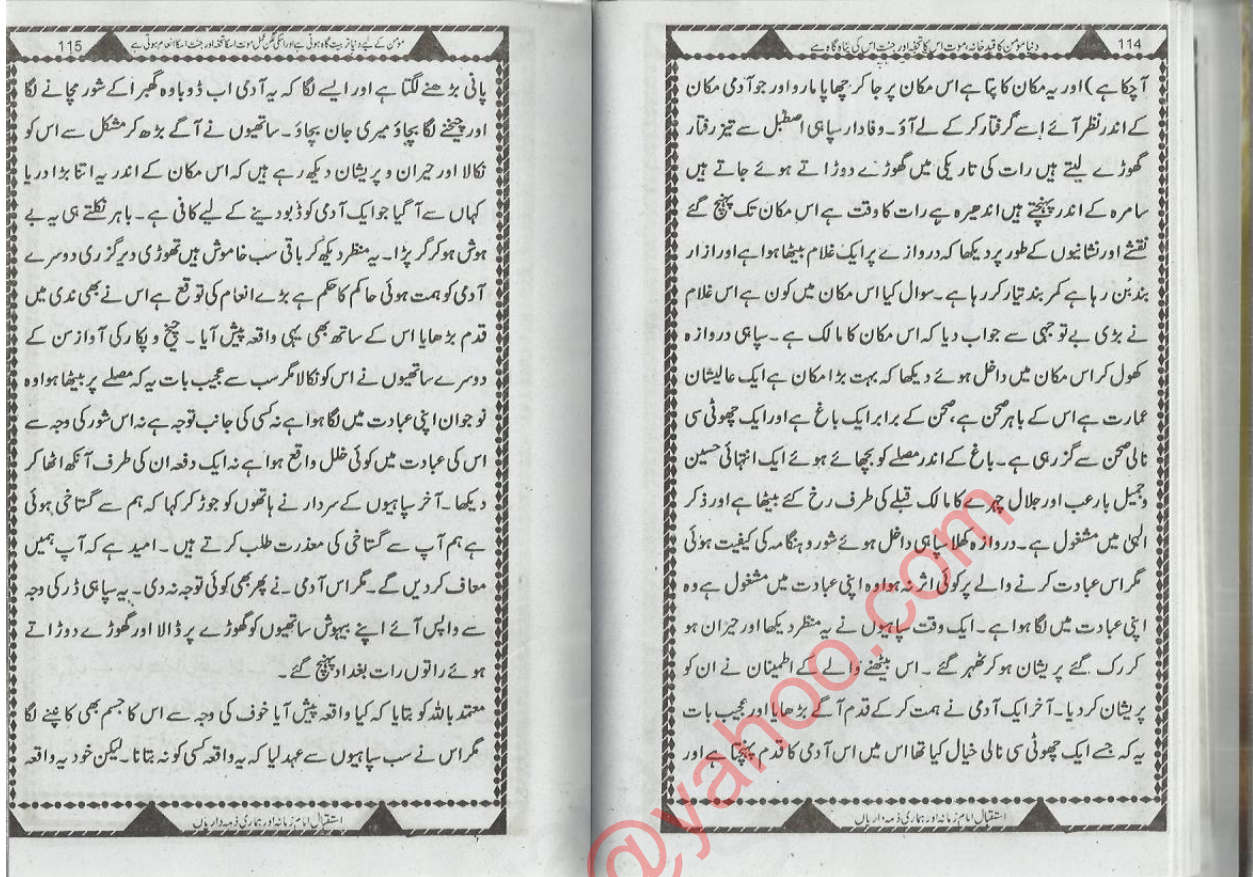 دنیا مؤمن کا قید خانہ، موت اس کا تحفہ اور جنت اس کی پناہ گاہ ہے
114
آچکا ہے) اور یہ مکان کا پتا ہے اس مکان پر جا کر چھاپا مارو اور جو آدمی مکان
کے اندر نظر آئے اسے گرفتار کر کے لے آؤ۔ وفادار سپاہی اصطبل سے تیز رفتار
گھوڑے لیتے ہیں رات کی تاریکی میں گھوڑے دوڑاتے ہوئے جاتے ہیں
سامرہ کے اندر پہنچتے ہیں اندھیرہ ہے رات کا وقت ہے اس مکان تک پہنچ گئے
نقشے اور نشانیوں کے طور پر دیکھا کہ دروازے پر ایک غلام بیٹھا ہوا ہے اور ازار
بند بُن رہا ہے کمر بند تیار کر رہا ہے۔ سوال کیا اس مکان میں کون ہے اس غلام
نے بڑی بے توجہی سے جواب دیا کہ اس مکان کا مالک ہے۔ سپاہی دروازہ
کھول کر اس مکان میں داخل ہوئے دیکھا کہ بہت بڑا مکان ہے ایک عالیشان
عمارت ہے اس کے باہر صحن ہے، صحن کے برابر ایک باغ ہے اور ایک چھوٹی سی
نالی صحن سے گزر رہی ہے۔ باغ کے اندر مصلے کو بچھائے ہوئے ایک انتہائی حسین
و جمیل بارعب اور جلال چہرے کا مالک قبلے کی طرف رخ کئے بیٹھا ہے اور ذکر
الٰہی میں مشغول ہے۔ دروازہ کھلا سپاہی داخل ہوئے شور و ہنگامہ کی کیفیت ہوئی
مگر اس عبادت کرنے والے پر کوئی اثر نہ ہوا وہ اپنی عبادت میں مشغول ہے وہ
اپنی عبادت میں لگا ہوا ہے۔ ایک وقت سپاہیوں نے یہ منظر دیکھا اور حیران ہو
کر رک گئے پریشان ہو کر ٹھہر گئے ۔ اس بیٹھنے والے کے اطمینان نے ان کو
پریشان کر دیا۔ آخر ایک آدمی نے ہمت کر کے قدم آگے بڑھایا اور عجیب بات
یہ کہ جسے ایک چھوٹی سی نالی خیال کیا تھا اس میں اس آدمی کا قدم پہنچتا ہے اور
استقبال امام زمانہ اور ہماری ذمہ داریاں
مؤمن کے لیے دنیا تربیت گاہ ہوتی ہے اور اسکی عمل موت اسکا تحفہ اور جنت اسکا انعام ہوتی ہے
115
پانی بڑھنے لگتا ہے اور ایسے لگا کہ یہ آدمی اب ڈوبا وہ گھبرا کے شور مچانے لگا
اور چیخنے لگا بچاؤ میری جان بچاؤ۔ ساتھیوں نے آگے بڑھ کر مشکل سے اس کو
نکالا اور حیران و پریشان دیکھ رہے ہیں کہ اس مکان کے اندر یہ اتنا بڑا دریا
کہاں سے آ گیا جو ایک آدمی کو ڈبو دینے کے لیے کافی ہے۔ باہر نکلتے ہی یہ بے
ہوش ہو کر گر پڑا۔ یہ منظر دیکھ کر باقی سب خاموش ہیں تھوڑی دیر گزری دوسرے
آدمی کو ہمت ہوئی حاکم کا حکم ہے بڑے انعام کی توقع ہے اس نے بھی ندی میں
قدم بڑھایا اس کے ساتھ بھی یہی واقعہ پیش آیا ۔ چیخ و پکار کی آواز سن کے
دوسرے ساتھیوں نے اس کو نکالا مگر سب سے عجیب بات یہ کہ مصلے پر بیٹھا ہوا وہ
نوجوان اپنی عبادت میں لگا ہوا ہے نہ کسی کی جانب توجہ ہے نہ اس شور کی وجہ سے
اس کی عبادت میں کوئی خلل واقع ہوا ہے نہ ایک دفعہ ان کی طرف آنکھ اٹھا کر
دیکھا۔ آخر سپاہیوں کے سردار نے ہاتھوں کو جوڑ کر کہا کہ ہم سے گستاخی ہوئی
ہے ہم آپ سے گستاخی کی معذرت طلب کرتے ہیں ۔ امید ہے کہ آپ ہمیں
معاف کر دیں گے۔ مگر اس آدمی نے پھر بھی کوئی توجہ نہ دی۔ یہ سپاہی ڈر کی وجہ
سے واپس آئے اپنے بیہوش ساتھیوں کو گھوڑے پر ڈالا اور گھوڑے دوڑاتے
ہوئے راتوں رات بغداد پہنچ گئے۔
معتمد باللہ کو بتایا کہ کیا واقعہ پیش آیا خوف کی وجہ سے اس کا جسم بھی کانپنے لگا
مگر اس نے سب سپاہیوں سے عہد لیا کہ یہ واقعہ کسی کو نہ بتانا۔ لیکن خود یہ واقعہ
استقبال امام زمانہ اور ہماری ذمہ داریاں
@yahoo.com